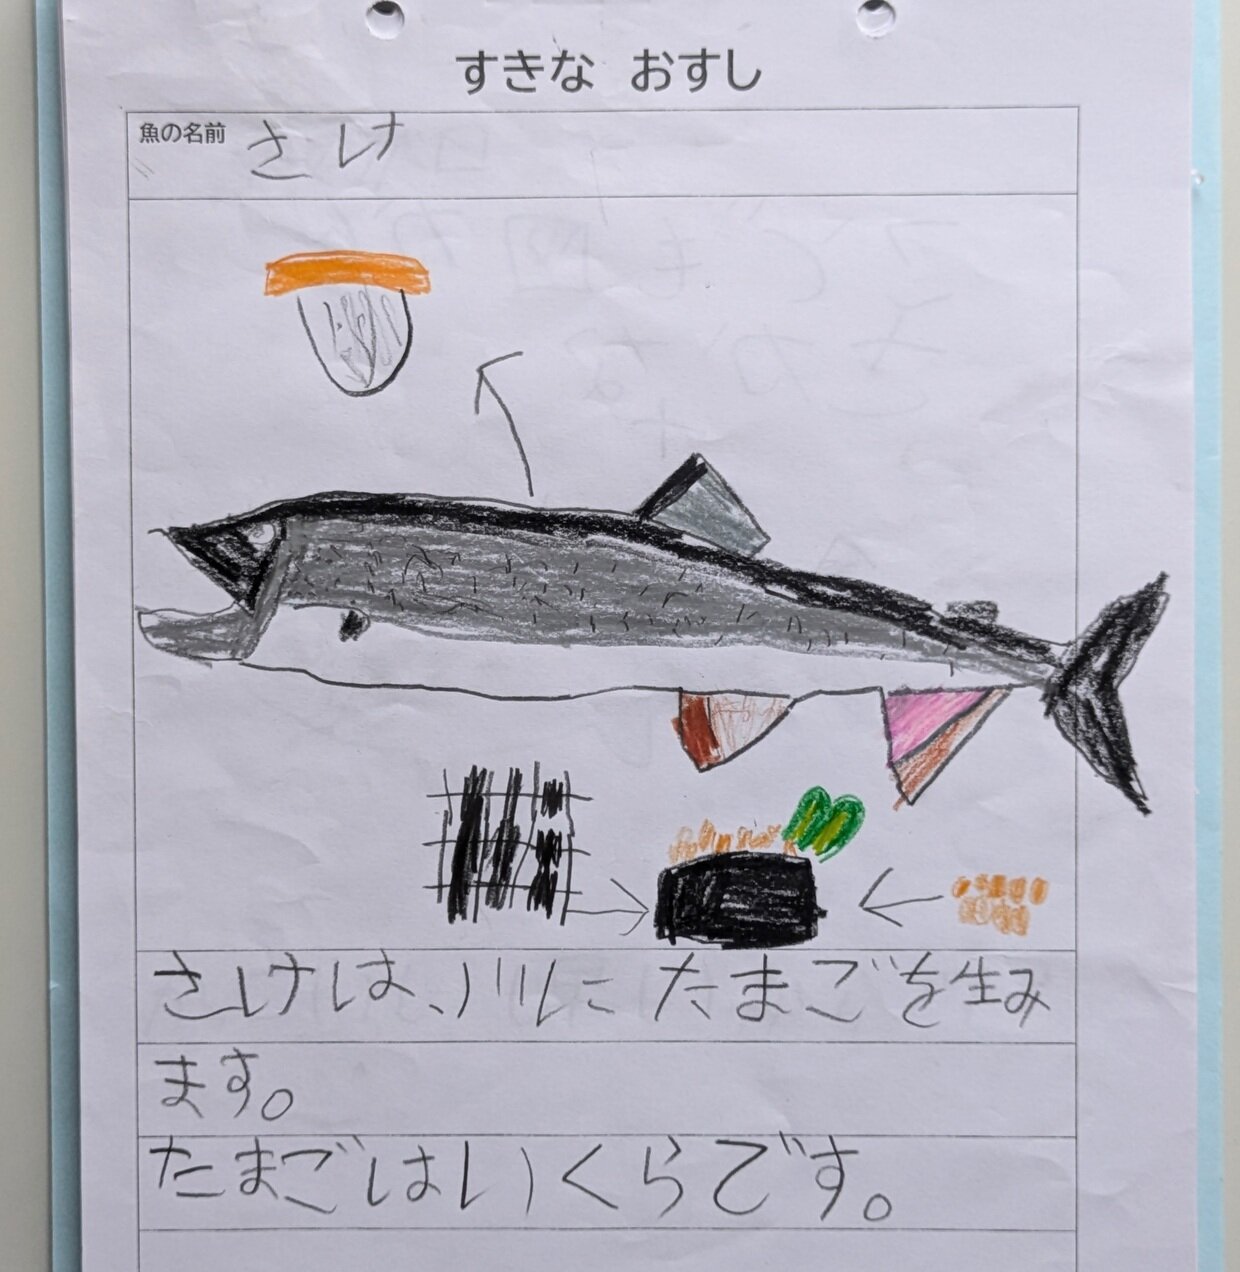 すきな おすし
魚の名前 さけ
さけは、川にたまごを生み
ます。
たまごはいくらです。